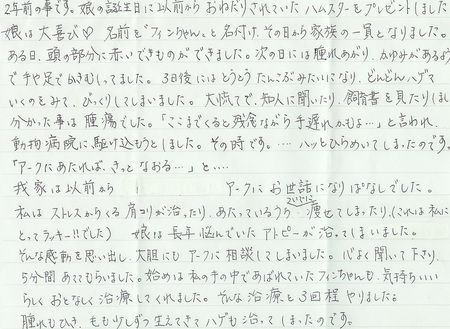 2年前の事です。娘の誕生日に以前からおねだりされていたハムスターをプレゼントしました
娘は大喜び♡ 名前を“フィンちゃん”と名付け、その日から家族の一員となりました。
ある日、頭の部分に赤いできものができました。次の日には腫れあがり、かゆみがあるよう
で手や足でかきむしってました。3日後にはとうとうたんこぶみたいになり、どんどんハゲて
いくのをみて、びっくりしてしまいました。大慌てで、知人に聞いたり、飼育書を見たりしまし
分かった事は腫瘍でした。「ここまでくると残念ながら手遅れかもよ…」と言われ、
動物病院に駆け込もうとしました。その時です。…ハッとひらめいてしまったのです。
「アークにあたれば、きっとなおる…」と…
我家は以前から アークにお世話になりぱなしでした。
私はストレスからくる肩コリが治ったり、あたっているうちに痩せてしまったり、(これは私に
とってラッキー!!でした) 娘は長年悩んでいたアトピーが治ってしまいました。
そんな感動を思い出し、大胆にもアークに相談してしまいました。心よく聞いて下さり、
5分間あててもらいました。始めは私の手の中であばれていたフィンちゃんも、気持ちいい
らしくおとなしく治療してくれました。そんな治療を3回程やりました。
腫れもひき、毛も少しずつ生えてきてハゲも治ってしまったのです。